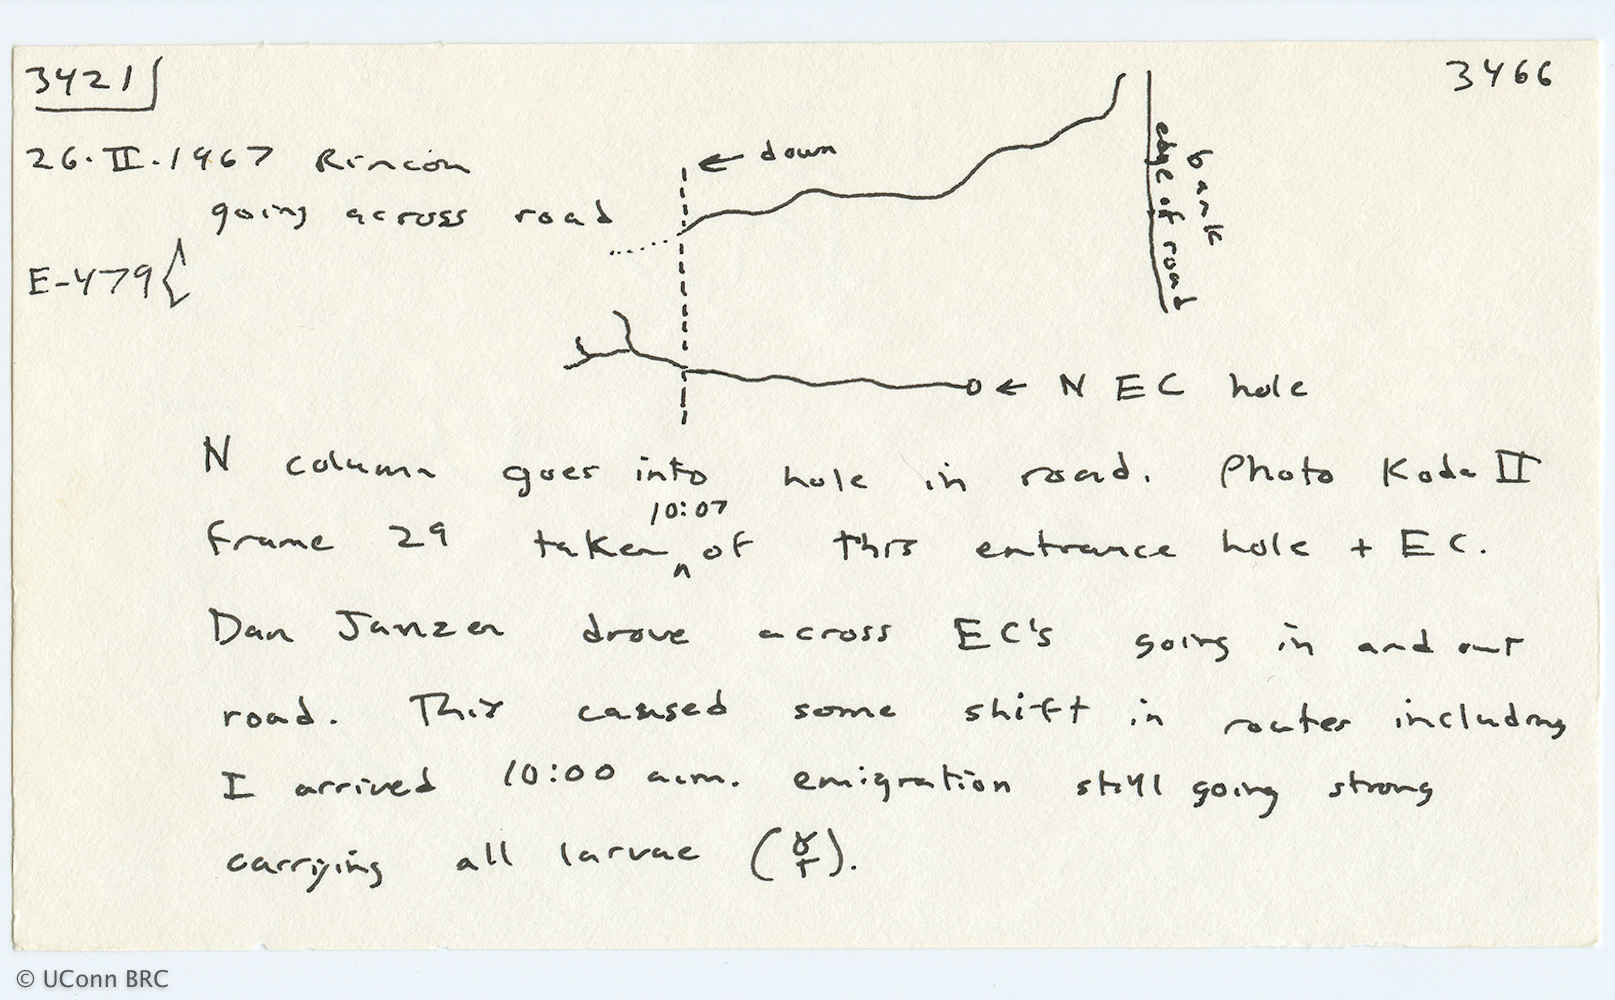 3421
3466
26.II.1967 Rincón
going across road
E-479
← down
bank
edge of road
← N EC hole
N column goes into hole in road. Photo Koda II
frame 29 taken ^ 10:07 of this entrance hole + EC.
Dan Janzen drove across EC's going in and out
road. This caused some shift in routes including
I arrived 10:00 a.m. emigration still going strong
carrying all larvae (☿).
© UConn BRC